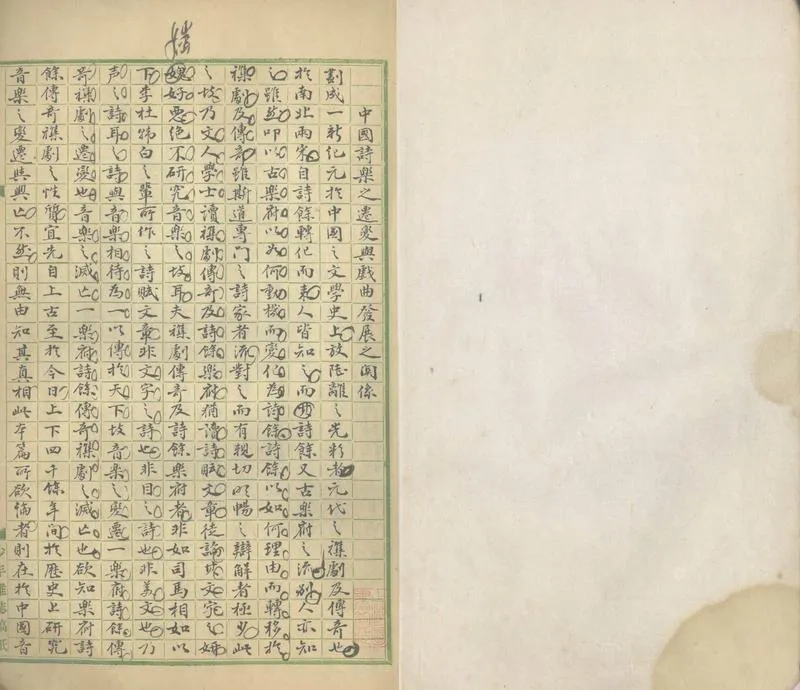 媸
中國詩樂之遷變與戲曲發展之関係
劃成一新纪元於中國之文學史上放陸離之光彩者元代之襍劇及傳奇也
於南北兩宋自詩餘轉化而来人皆知之而詩餘又古樂府之流別人亦知
之雖然叩以古樂府以如何動機而變化為詩餘詩餘以如何理由而轉移於
襍劇及傳奇雖斯道專門之詩家者流對之而有親切明暢辯解者極少此
之故乃文人學士讀襍劇傳奇及詩餘樂府猶讀詩賦文章徒論文之妍
好惡絕不研究音樂之故耳夫襍劇傳奇及詩餘樂府者非如司馬相如以
下李杜韓白之輩所作之詩賦文章非文字之詩也非目之詩也非美文也乃
声之詩耳詩與音樂相待為一以傳於天下故音樂之變遷一樂府詩餘傳
奇襍劇之遷變也音樂之滅亡一樂府詩餘傳奇襍劇之滅亡也欲知樂府詩
餘傳奇襍劇之性質宜先自上古至於今日上下四千餘年間於歷史上研究
音樂之變遷與興亡不然則無由知其真相此本篇所欲編者則在於中國音